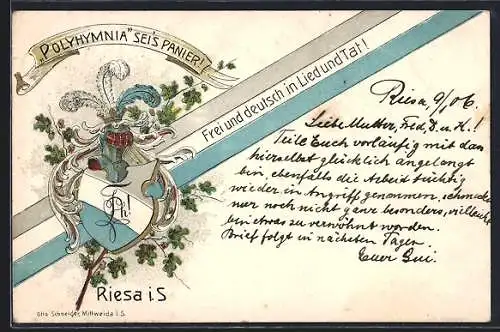 „POLYHYMNIA" SEI'S PANIER!
Frei und deutsch in Lied und Tat!
Riesa, 9/06.
Liebe Mutter, Fred, D. u. K.!
Teile Euch vorläufig mit das
hierselbst glücklich angelangt
bin, ebenfalls die Arbeit tüchtig
wieder in Angriff genommen, schmeckt
nur noch nicht ganz besonders, vielleicht
bin etwas zu verwöhnt worden.
Brief folgt in nächsten Tagen.
Euer
Riesa i.S
Otto Schneider, Mittweida i. S.